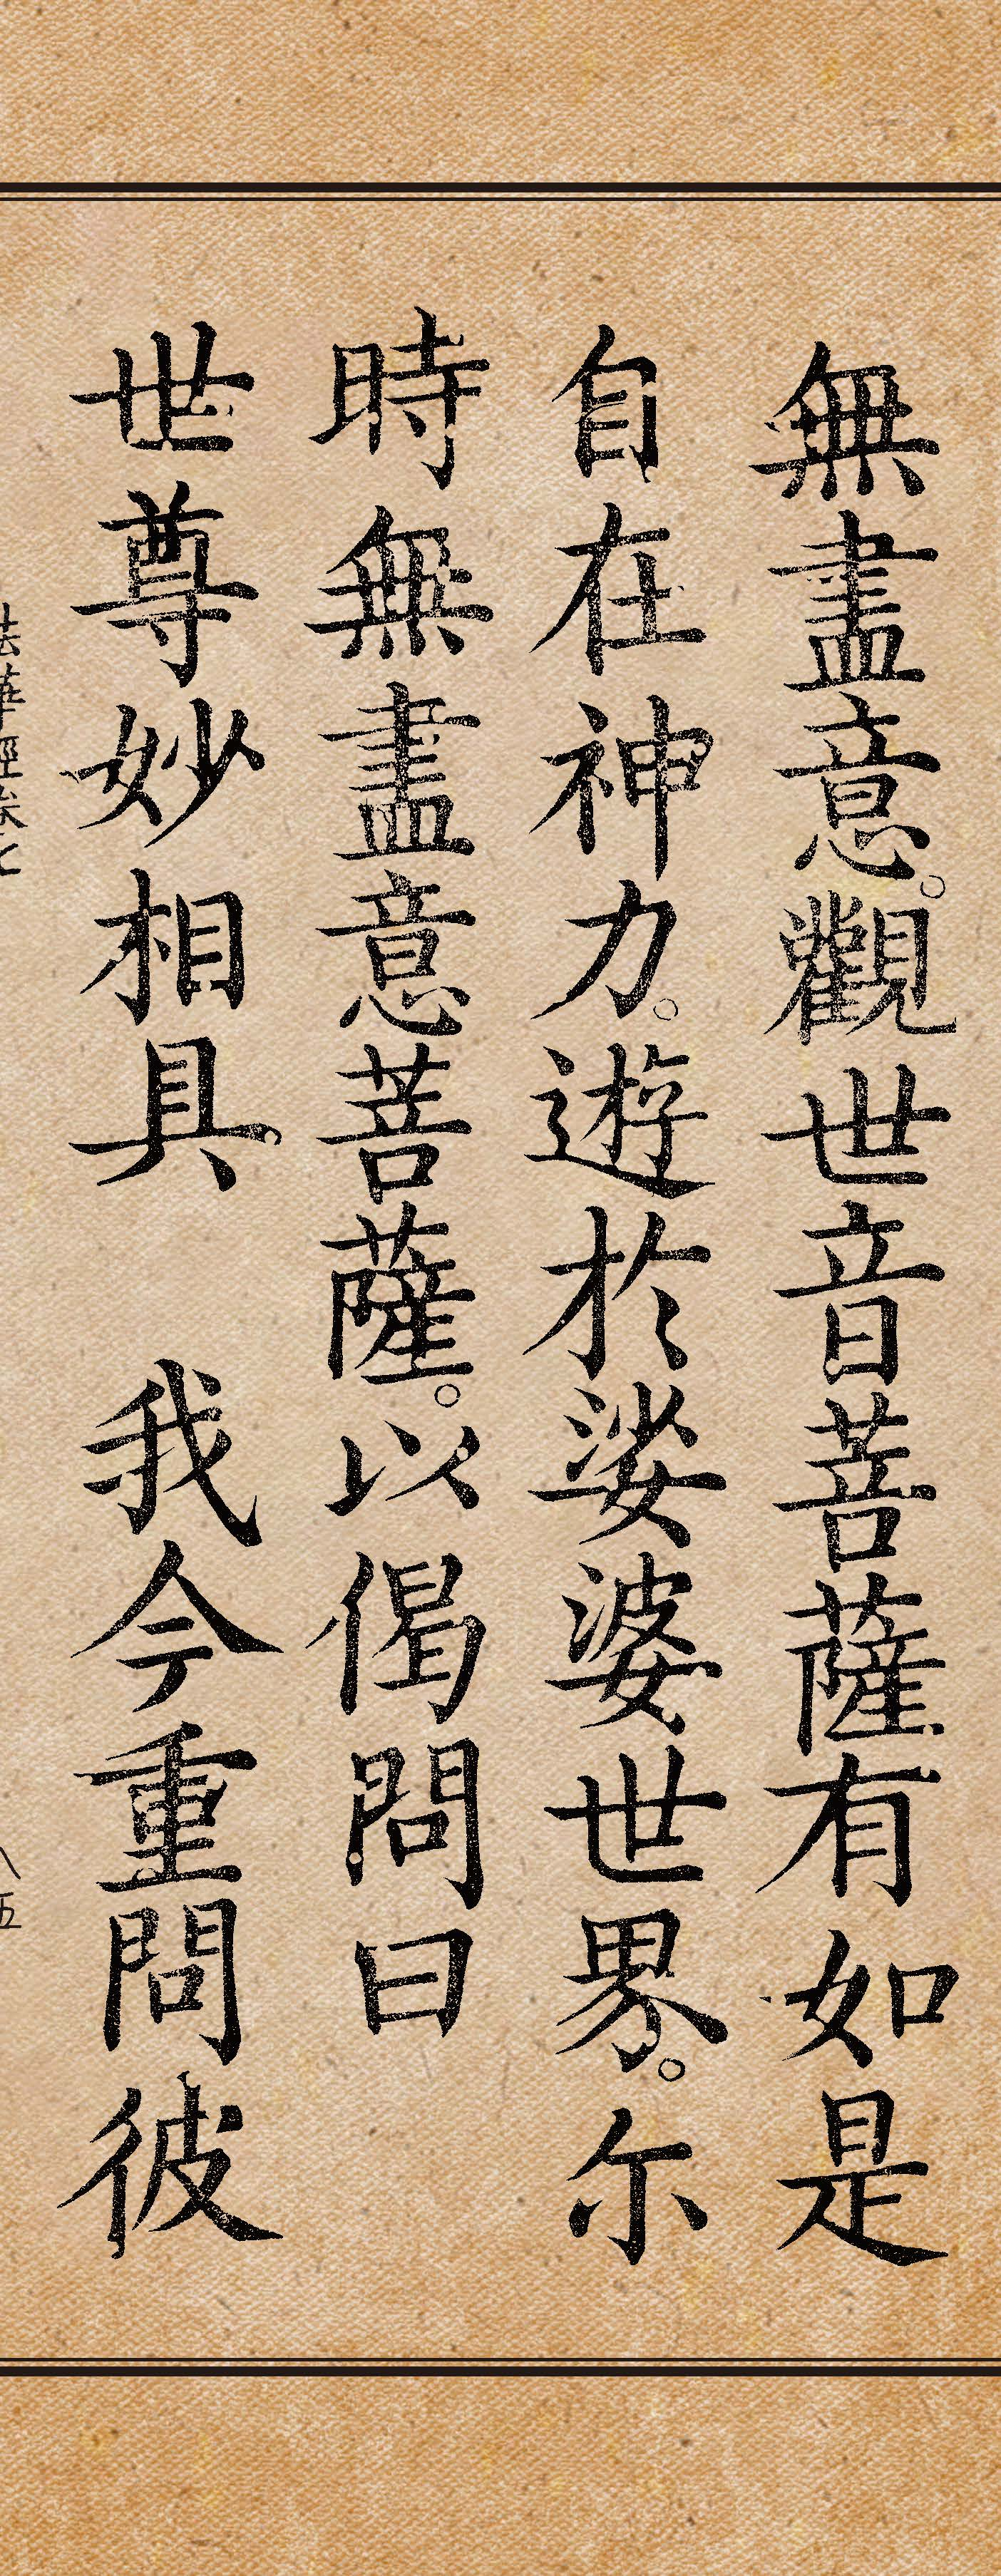 無盡意。觀世音菩薩有如是
自在神力。遊於娑婆世界。尔
時無盡意菩薩。以偈問曰
世尊妙相具　我今重問彼